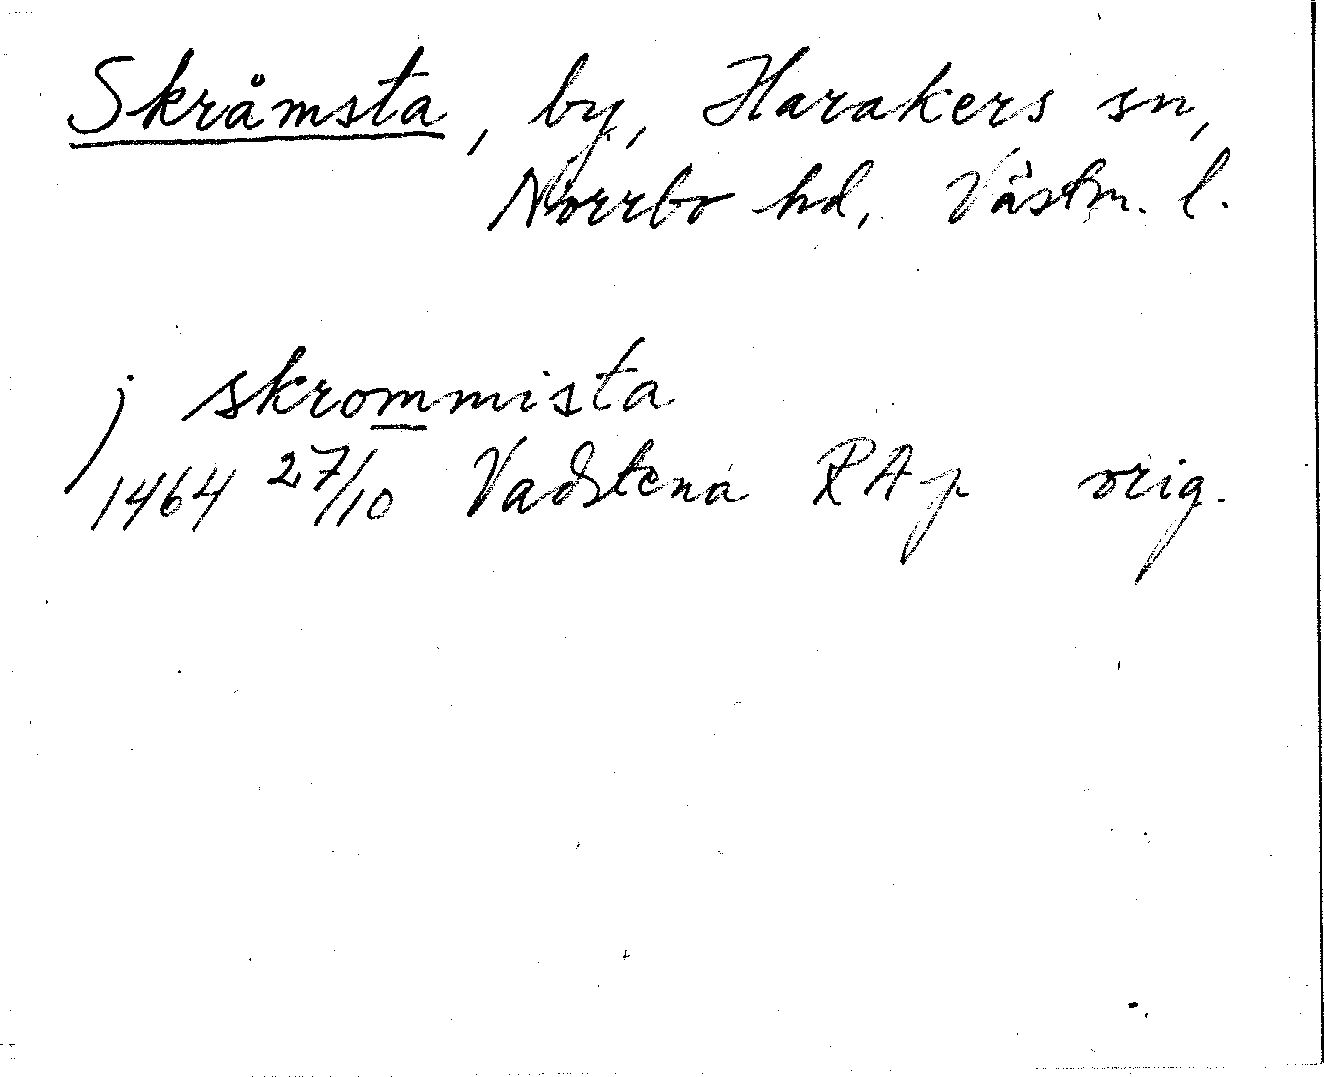 Skråmsta, by, Harakers sn,
Norrbo hd, Västm. l.
j skrommista
1464 27/10 Vadstena RAp orig.